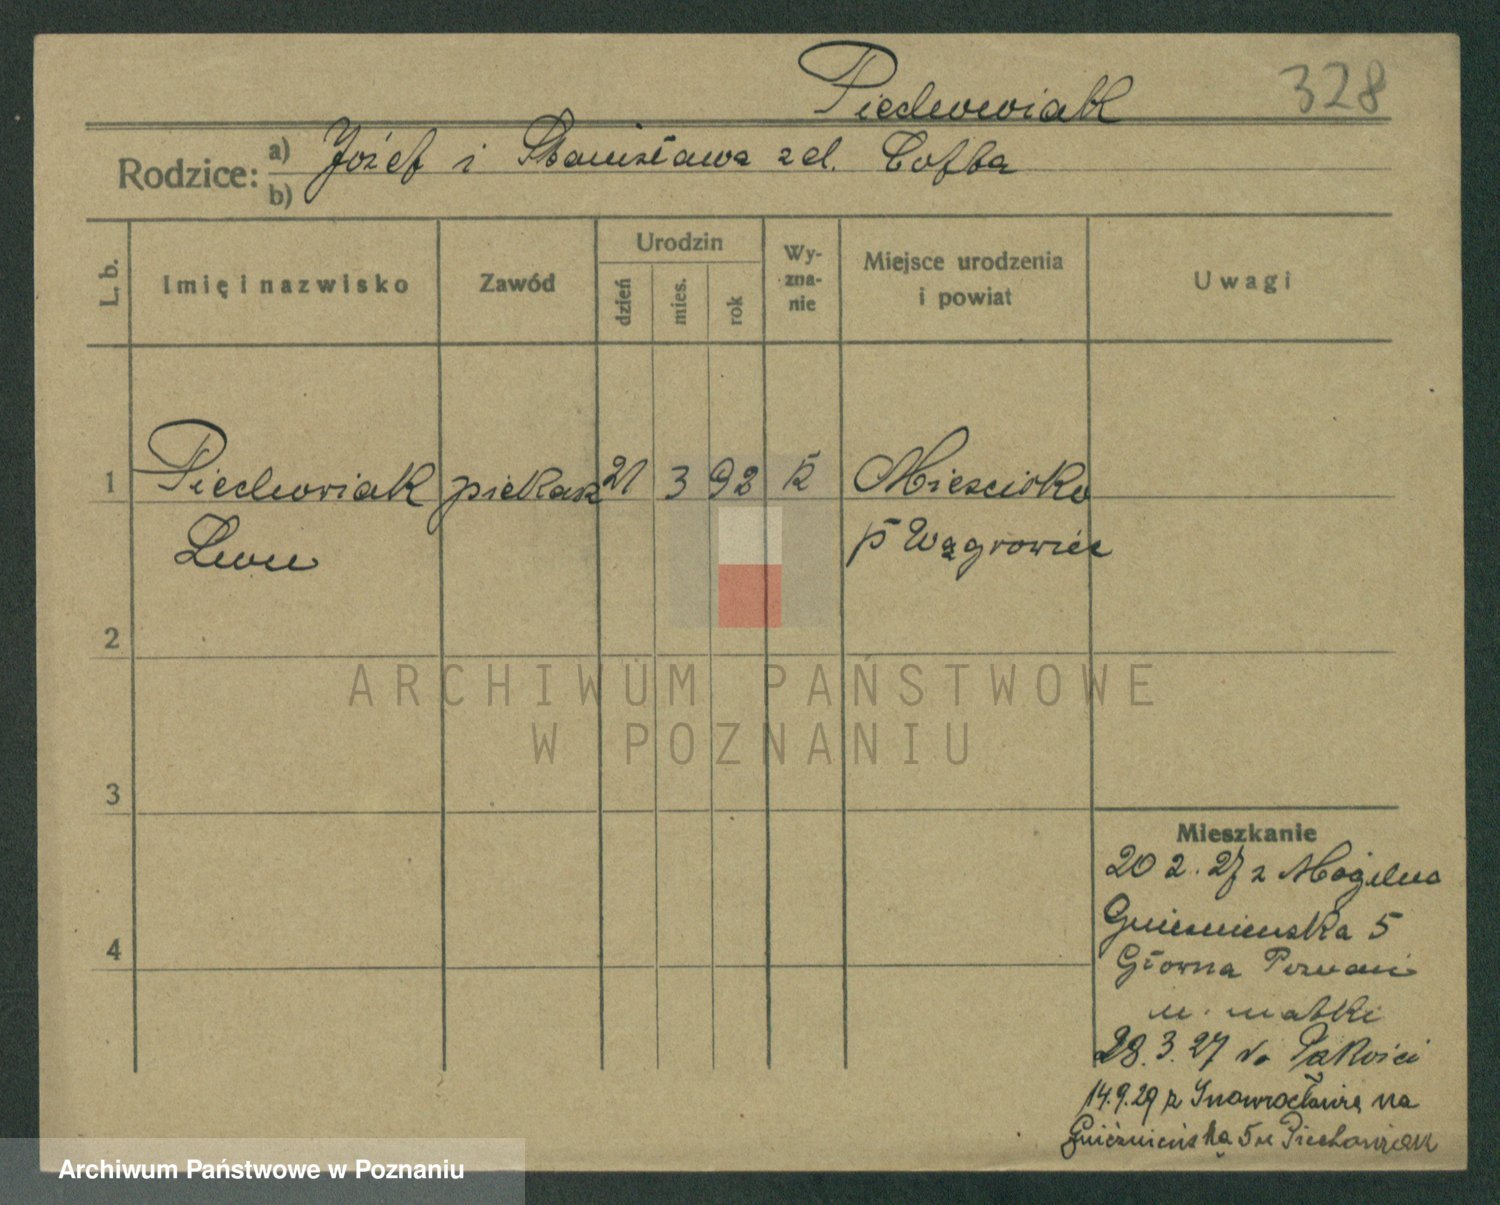 Piechowiak 328
Rodzice: a) Józef i Stanisława zd. Cofta
b)
L. b. Imię i nazwisko Zawód Urodzin dzień mies. rok Wy-zna-nie Miejsce urodzenia i powiat Uwagi
1 Piechowiak piekarz 21 3 92 k Mieścisko
Leon p Wągrowiec
2
3
4
Mieszkanie
20 2. 27 z Mogilna
Gnieźnieńska 5
Główna Poznań
u. matki
28. 3. 27 do Pakości
14.9.29 z Inowrocławia na
Gnieźnieńską 5 u Piechowiak
ARCHIWUM PAŃSTWOWE
W POZNANIU
Archiwum Państwowe w Poznaniu